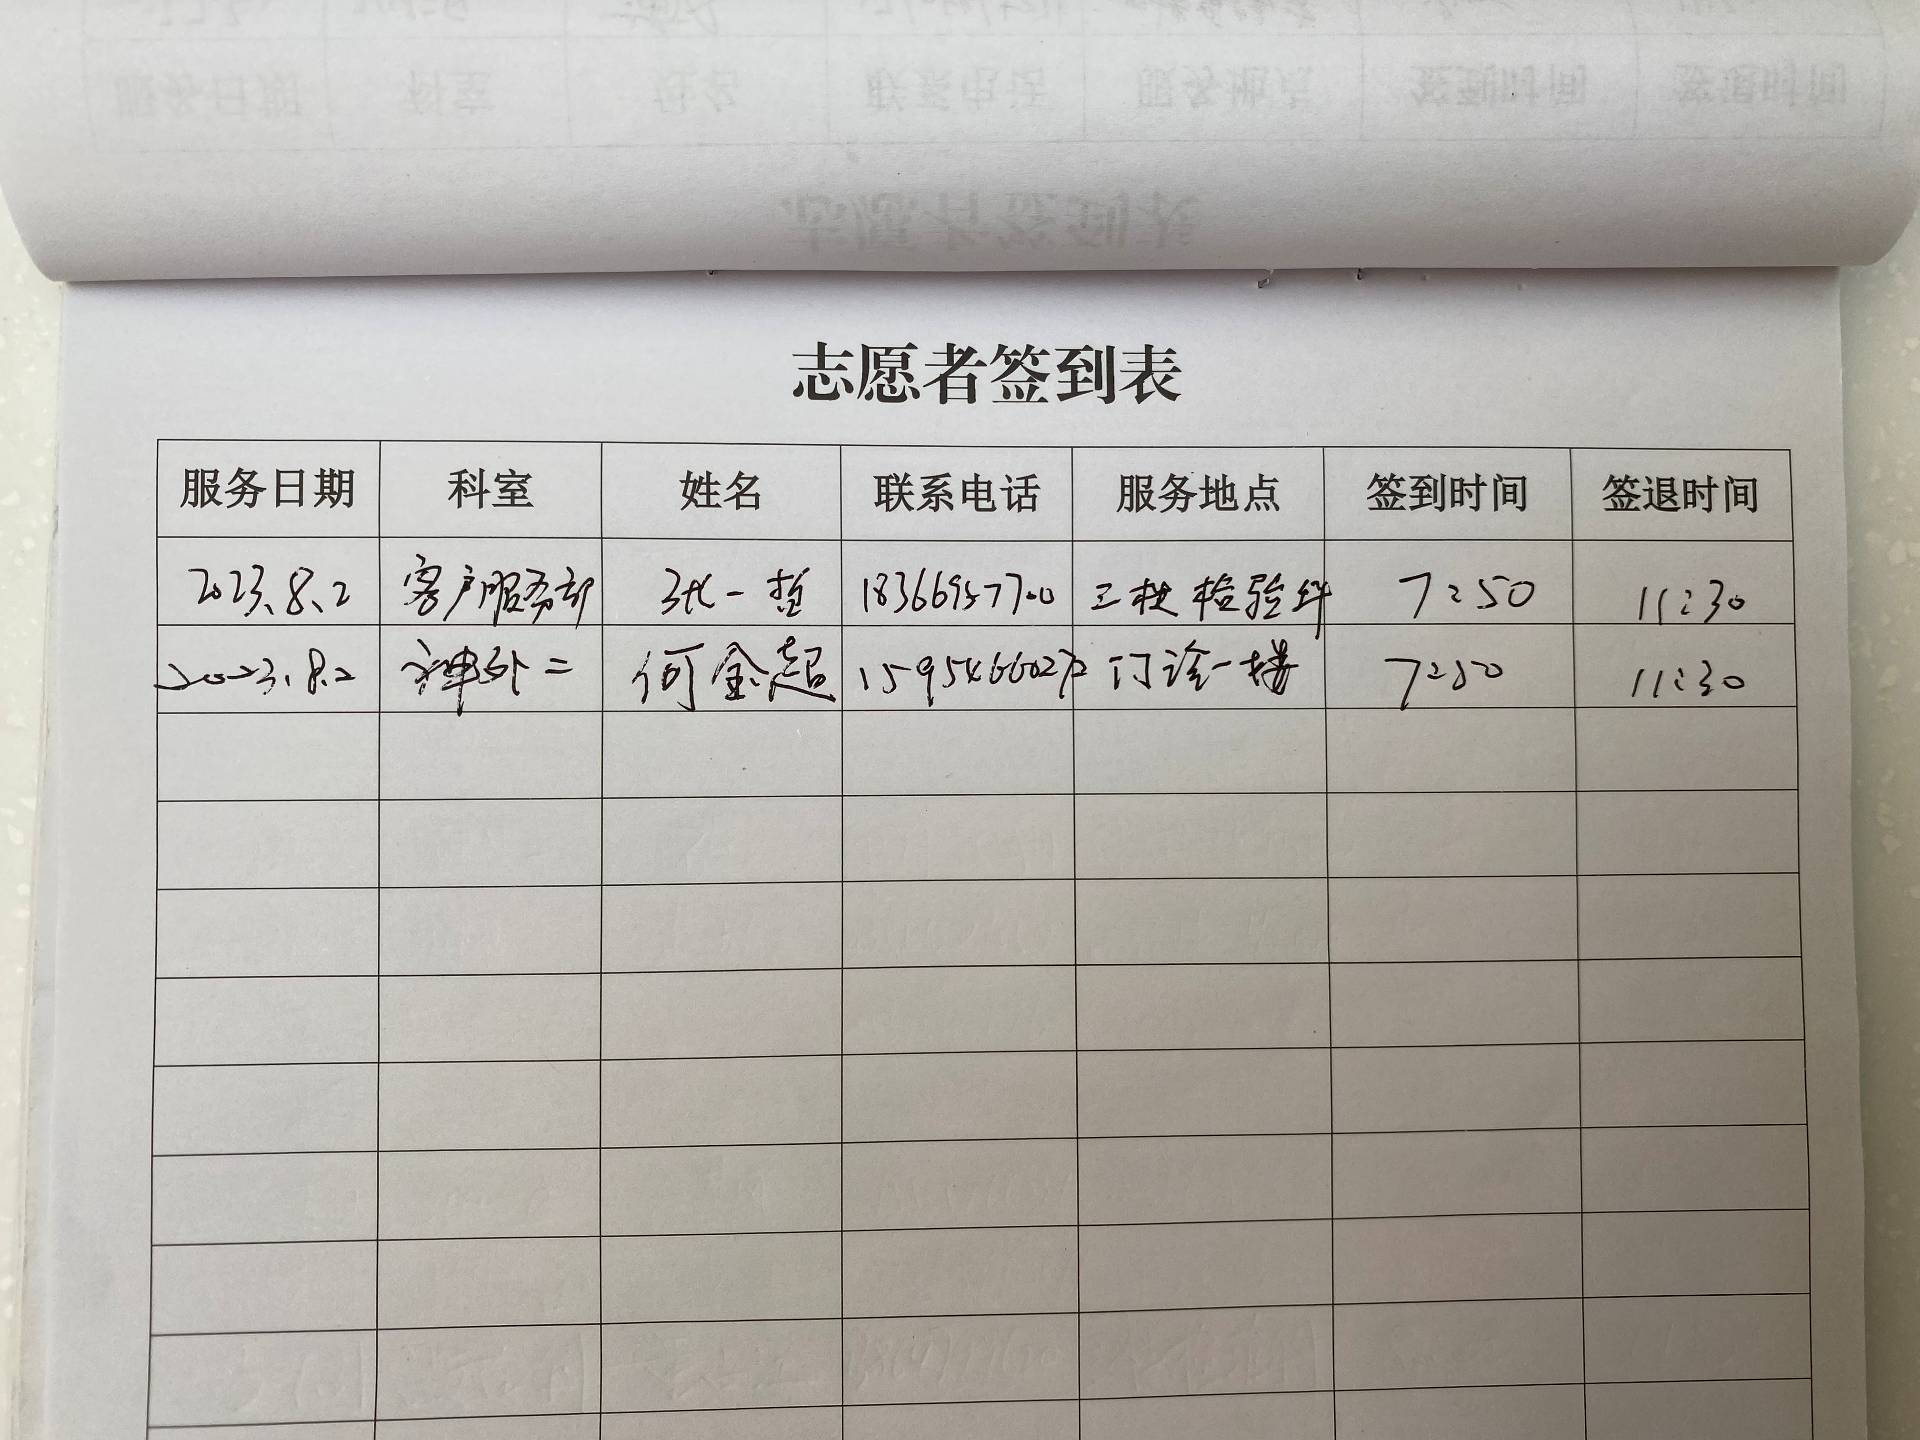 志愿者签到表
服务日期 科室 姓名 联系电话 服务地点 签到时间 签退时间
2023.8.2 客户服务部 张一哲 18366957700 三楼检验科 7:50 11:30
2023.8.2 神外二 何金超 15954660272 门诊一楼 7:50 11:30